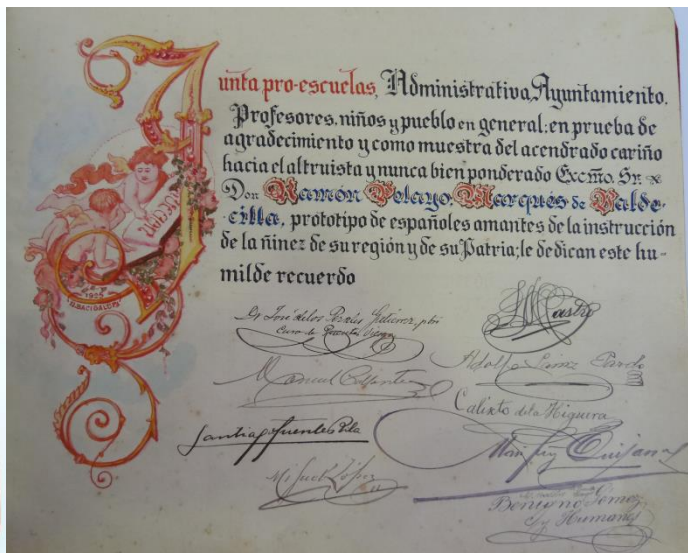 Junta pro-escuelas, Administrativa, Ayuntamiento,
Profesores, niños y pueblo en general: en prueba de
agradecimiento y como muestra del acendrado cariño
hacia el altruista y nunca bien ponderado Excmo. Sr.
Don Ramón Pelayo, Marqués de Valde-
cilla, prototipo de españoles amantes de la instrucción
de la ñinez de su región y de su Patria; le dedican este hu-
milde recuerdo
1925
Castro
Dr José de los
Cura de
Adolfo Sainz Pardo
Manuel
Calixto de la Higuera
Santiago Fuentes Pila
Quijano
Miguel López
Benigno Gómez
y Hermano